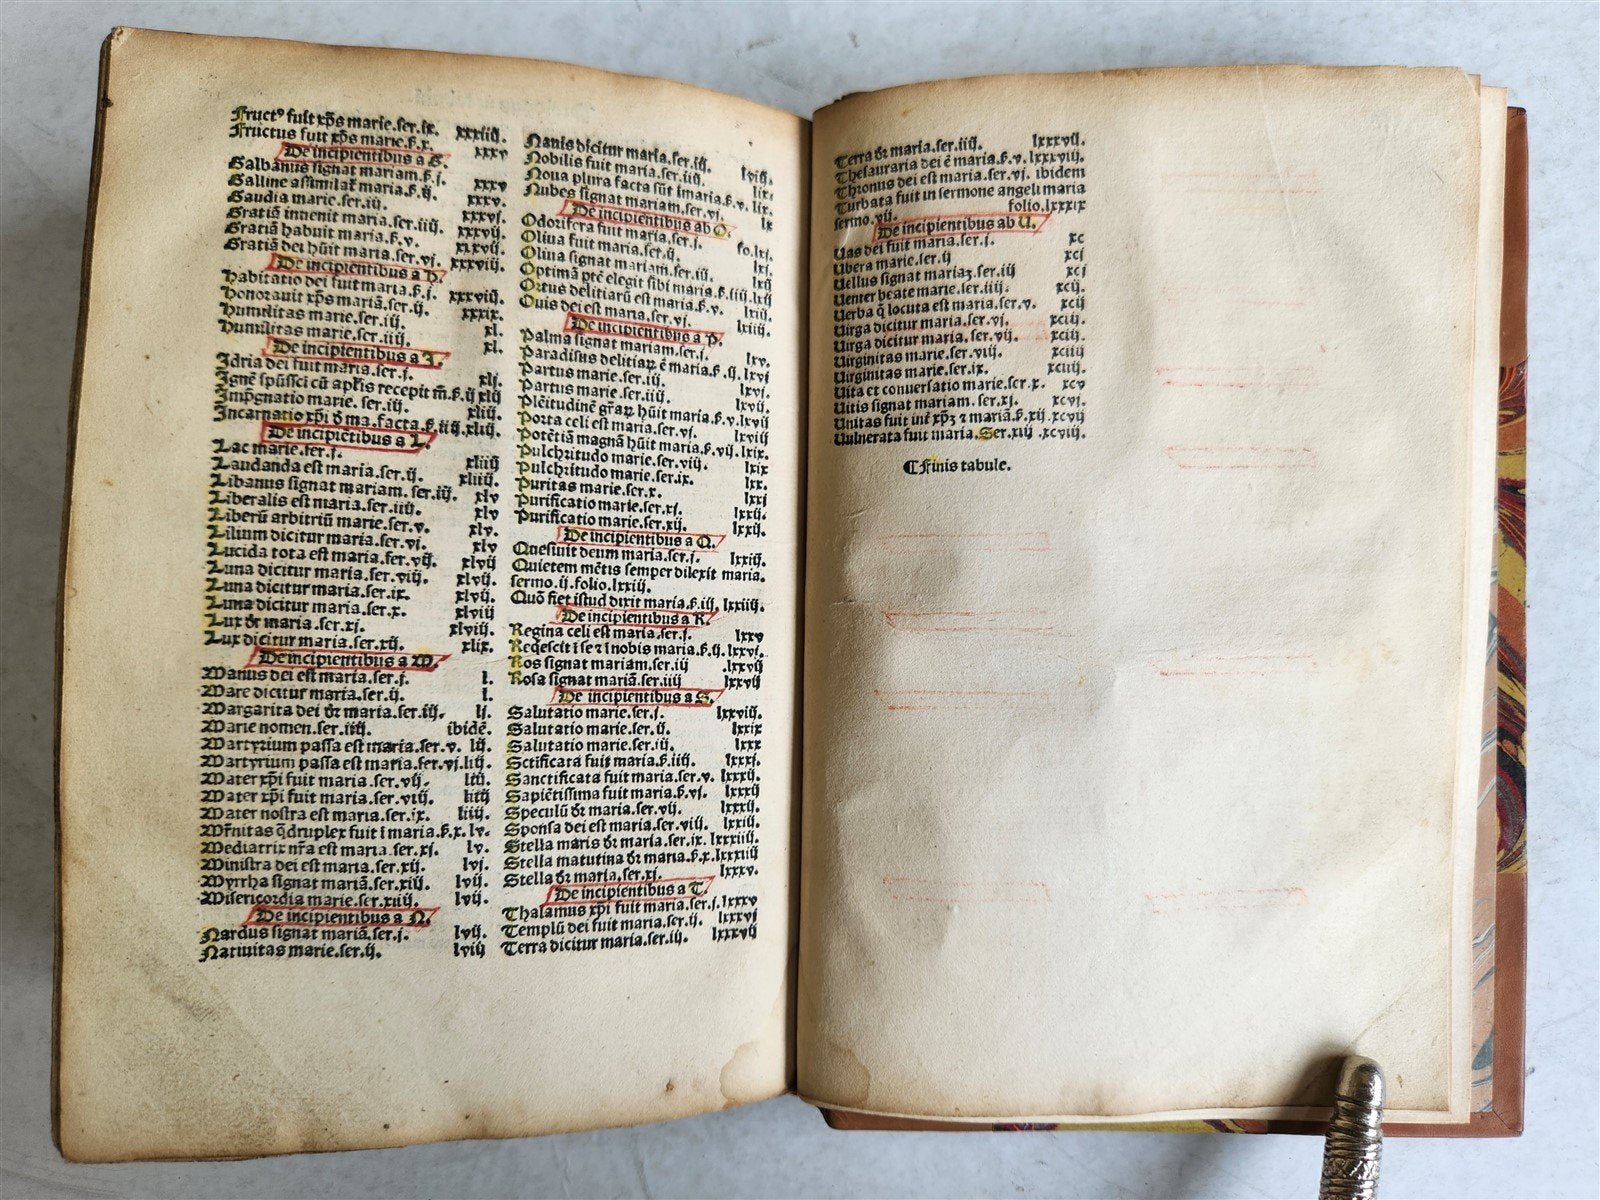 Fructꝰ fuit xp̄s marie.ser.ix. xxxiiij.
Fructus fuit xp̄s marie.ẜ.x. xxxv
De incipientibus a G.
Galbanus signat mariam.ẜ.j.
Galline assimilat᷑ maria.ẜ.ij. xxxv
Gaudia marie.ser.iij. xxxv.
Gratiā inuenit maria.ser.iiij. xxxvj.
Gratiā habuit maria.ẜ.v. xxxvij.
Gratiā dei hūit maria.ser.vj. xxxviij.
De incipientibus a H.
Habitatio dei fuit maria.ẜ.j. xxxviij.
Honorauit xp̄s mariā.ser.ij. xxxix.
Humilitas marie.ser.iij. xl.
Humilitas marie.ser.iiij xl.
De incipientibus a I.
Idria dei fuit maria.ser.j. xlj.
Ignē sp̄ussci cū aplis recepit m̄.ẜ.ij xlij
Imp̄gnatio marie.ser.iij. xliij.
Incarnatio xp̄i ī ma.facta.ẜ.iiij.xliij.
De incipiētibus a L.
Lac marie.ser.j. xliiij
Laudanda est maria.ser.ij. xliiij.
Libanus signat mariam.ser.iij. xlv
Liberalis est maria.ser.iiij. xlv
Liberū arbitriū marie.ser.v. xlv.
Lilium dicitur maria.ser.vj. xlv
Lucida tota est maria.ser.vij. xlvij
Luna dicitur maria.ser.viij. xlvij.
Luna dicitur maria.ser.ix. xlvij.
Luna dicitur maria.ser.x. xlviij
Lux dr̄ maria.ser.xj. xlviij.
Lux dicitur maria.ser.xij. xlix.
De incipientibus a M.
Manus dei est maria.ser.j. l.
Mare dicitur maria.ser.ij. l.
Margarita dei dr̄ maria.ser.iij. lj.
Marie nomen.ser.iiij. ibidē.
Martyrium passa est maria.ser.v. lij.
Martyrium passa est maria.ser.vj.lij.
Mater xp̄i fuit maria.ser.vij. liij.
Mater xp̄i fuit maria.ser.viij. liiij
Mater nostra est maria.ser.ix. liiij.
Mr̄nitas q̄druplex fuit ī maria.ẜ.x. lv.
Mediatrix nr̄a est maria.ser.xj. lv.
Ministra dei est maria.ser.xij. lvj.
Myrrha signat mariā.ser.xiij. lvij.
Misericordia marie.ser.xiiij. lvij.
De incipientibus a N.
Nardus signat mariā.ser.j. lvij.
Natiuitas marie.ser.ij. lviij
Nanis dicitur maria.ser.iij. lviij.
Nobilis fuit maria.ser.iiij. lix.
Noua plura facta sūt ī maria.ẜ.v. lix.
Nubes signat mariam.ser.vj. lx
De incipientibus ab O.
Odorifera fuit maria.ser.j. fo.lxj.
Oliua fuit maria.ser.ij. lxj.
Oliua signat mariam.ser.iij. lxij
Optimā ptē elegit sibi maria.ẜ.iiij.lxij
Ortus delitiarū est maria.ẜ.v. lxiij.
Ouis dei est maria.ser.vj. lxiiij.
De incipientibus a P.
Palma signat mariam.ser.j. lxv.
Paradisus delitiaꝝ ē maria.ẜ.ij.lxvj
Partus marie.ser.iij. lxvj.
Partus marie.ser.iiij. lxvij.
Plēitudinē gr̄aꝝ hūit maria.ẜ.v.lxvij
Porta celi est maria.ser.vj. lxviij
Potētiā magnā hūit maria.ẜ.vij. lxix.
Pulchritudo marie.ser.viij. lxix
Pulchritudo marie.ser.ix. lxx.
Puritas marie.ser.x. lxxj
Purificatio marie.ser.xj. lxxij.
Purificatio marie.ser.xij. lxxij.
De incipientibus a Q.
Quesiuit deum maria.ser.j. lxxiij.
Quietem mētis semper dilexit maria.
sermo.ij.folio.lxxiij.
Quō fiet istud dixit maria.ẜ.iij. lxxiiij.
De incipientibus a R.
Regina celi est maria.ser.j. lxxv
Reqescit ī se ⁊ ī nobis maria.ẜ.ij.lxxvj.
Ros signat mariam.ser.iij .lxxvij
Rosa signat mariā.ser.iiij lxxvij
De incipientibus a S.
Salutatio marie.ser.j. lxxviij.
Salutatio marie.ser.ij. lxxix
Salutatio marie.ser.iij. lxxx
Sctificata fuit maria.ẜ.iiij. lxxxj.
Sanctificata fuit maria.ser.v. lxxxij.
Sapiētissima fuit maria.ẜ.vj. lxxxij
Speculū dr̄ maria.ser.vij. lxxxij.
Sponsa dei est maria.ser.viij. lxxiij.
Stella maris dr̄ maria.ser.ix. lxxxiiij.
Stella matutina dr̄ maria.ẜ.x.lxxxiiij
Stella dr̄ maria.ser.xj. lxxxv.
De incipientibus a T.
Thalamus xp̄i fuit maria.ser.j.lxxxv
Templū dei fuit maria.ser.ij. lxxxvj
Terra dicitur maria.ser.iij. lxxxvij
Terra dr̄ maria.ser.iiij. lxxxvij.
Thesauraria dei ē maria.ẜ.v. lxxxviij.
Thronus dei est maria.ser.vj. ibidem
Turbata fuit in sermone angeli maria
sermo.vij. folio.lxxxix
De incipientibus ab U.
Uas dei fuit maria.ser.j. xc
Ubera marie.ser.ij xcj
Uellus signat mariaꝫ.ser.iij xcj
Uenter beate marie.ser.iiij. xcij.
Uerba q̄ locuta est maria.ser.v. xcij
Uirga dicitur maria.ser.vj. xciij.
Uirga dicitur maria.ser.vij. xciij.
Uirginitas marie.ser.viij. xciiij
Uirginitas marie.ser.ix. xciiij.
Uita et conuersatio marie.ser.x. xcv
Uitis signat mariam.ser.xj. xcvj.
Unitas fuit int᷑ xp̄ꝫ ⁊ mariā.ẜ.xij xcvij
Uulnerata fuit maria.Ser.xiij .xcviij.
¶Finis tabule.